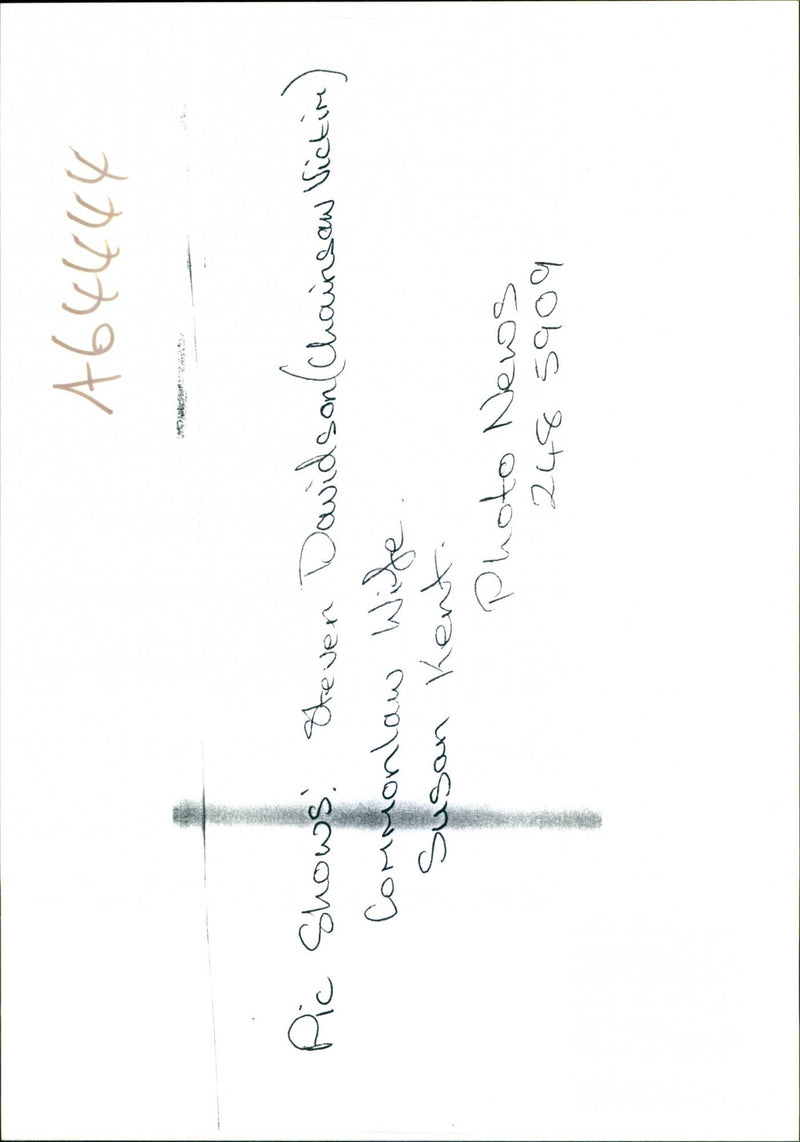 A64444
Pic Shows: Steven Davidson (Chainsaw Victim)
Commonlaw Wife.
Susan Kent.
Photo News
248 5909